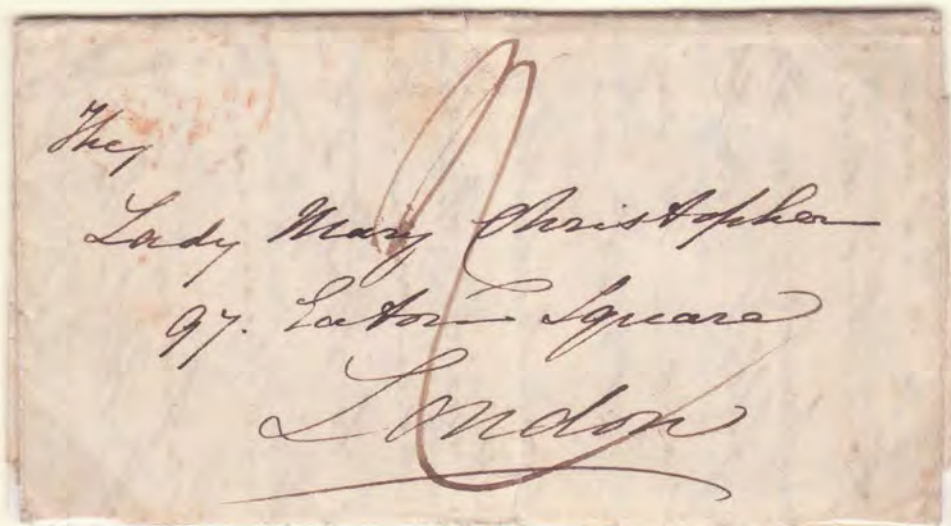 The
Lady Mary Christopher
97. Eaton Square
London